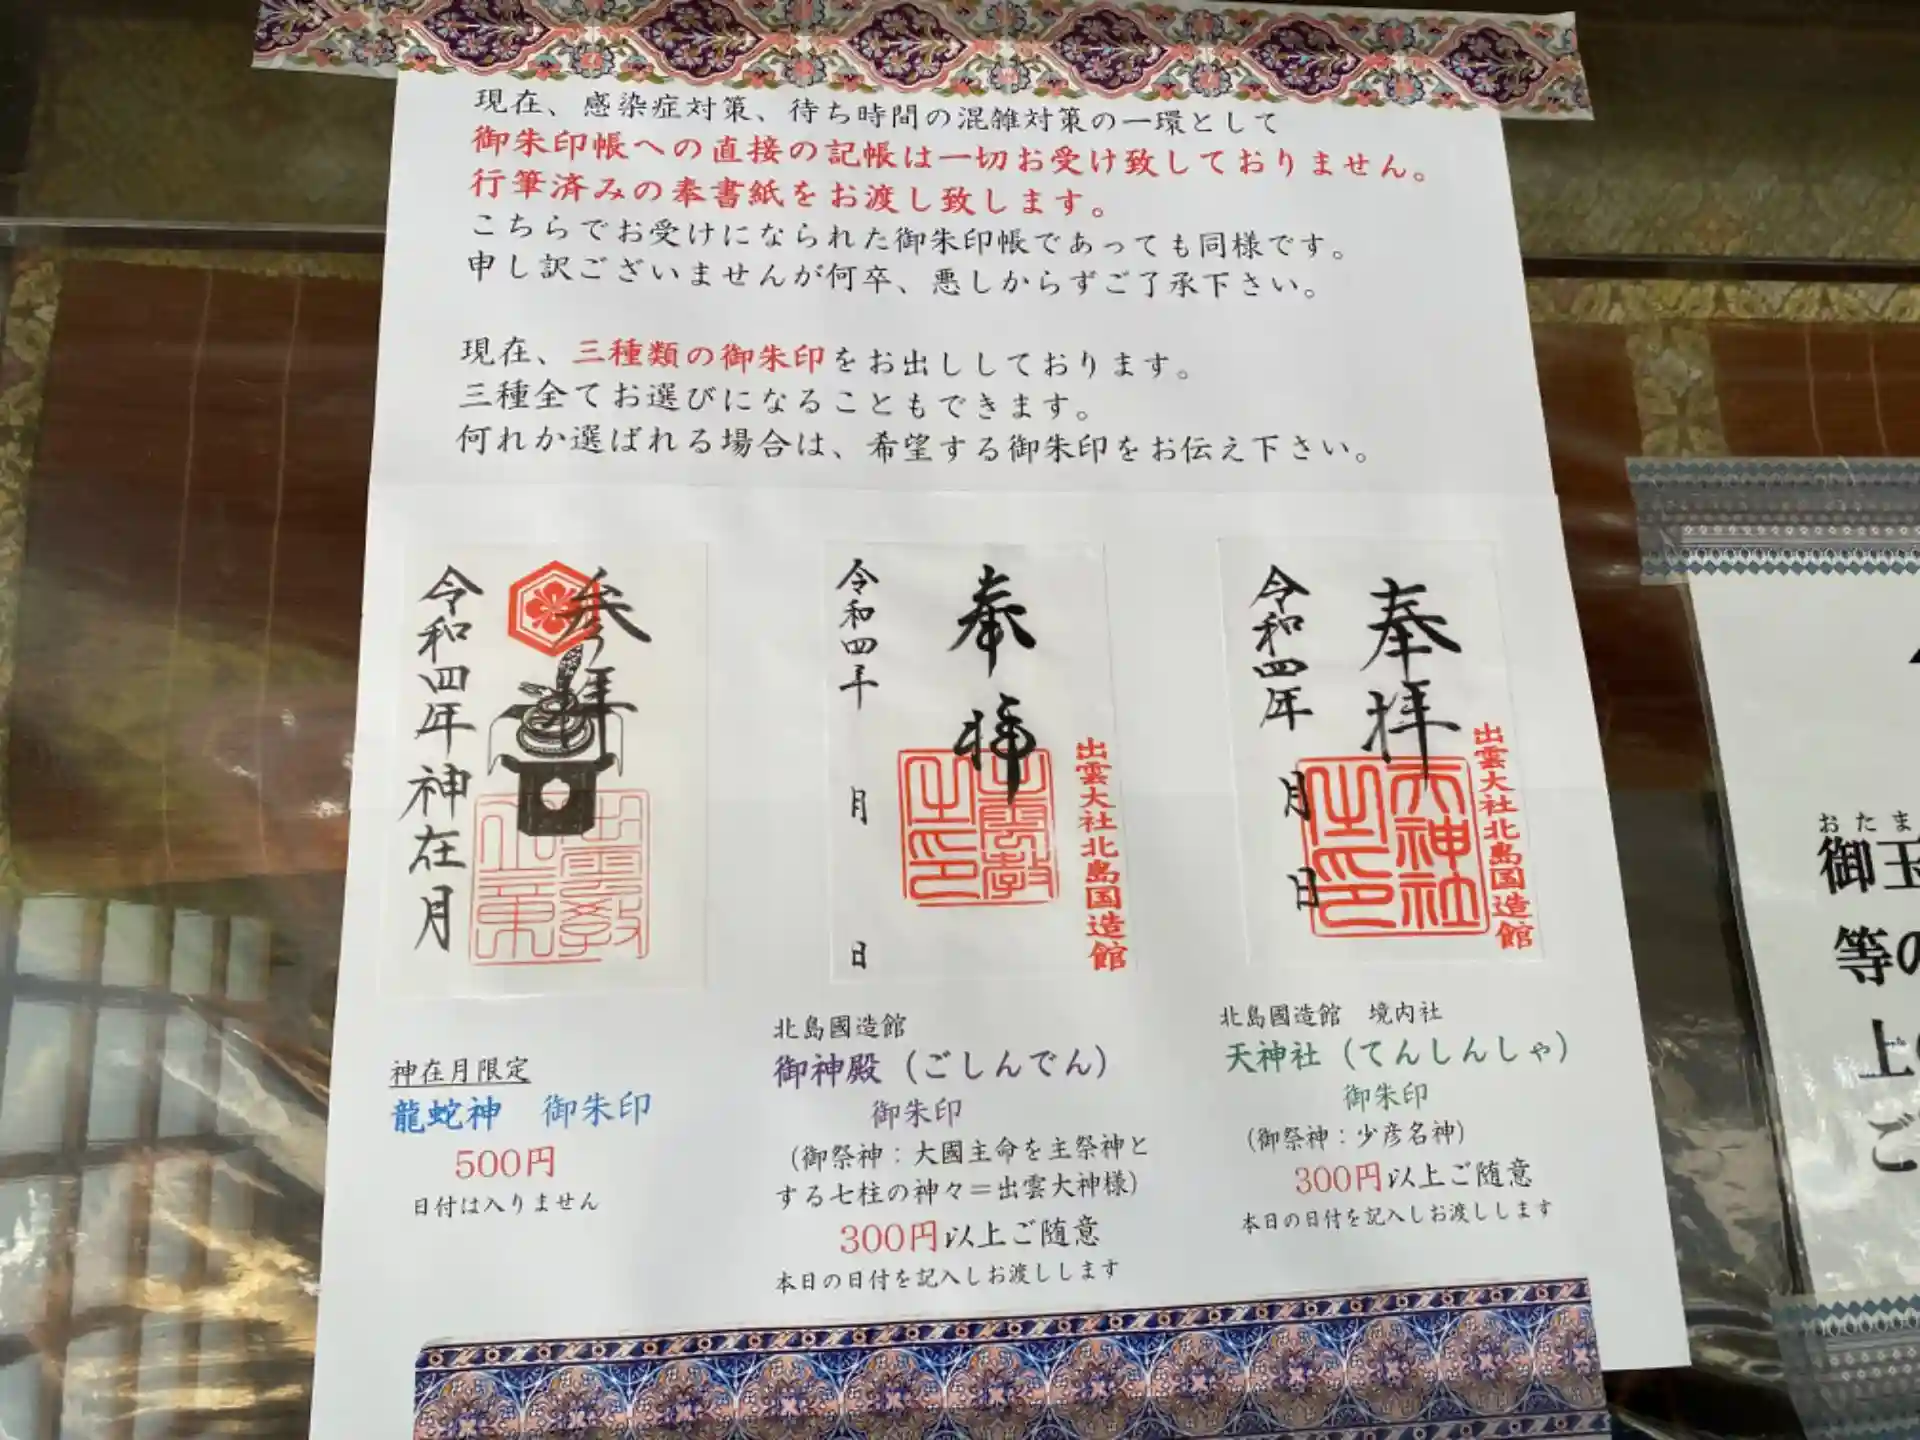 現在、感染症対策、待ち時間の混雑対策の一環として
御朱印帳への直接の記帳は一切お受け致しておりません。
行筆済みの奉書紙をお渡し致します。
こちらでお受けになられた御朱印帳であっても同様です。
申し訳ございませんが何卒、悪しからずご了承下さい。
現在、三種類の御朱印をお出ししております。
三種全てお選びになることもできます。
何れか選ばれる場合は、希望する御朱印をお伝え下さい。
参拝
令和四年神在月
奉拝
令和四年 月 日
出雲教之印
出雲大社北島国造館
奉拝
令和四年 月 日
天神社之印
出雲大社北島国造館
神在月限定
龍蛇神 御朱印
500円
日付は入りません
北島國造館
御神殿(ごしんでん)
御朱印
(御祭神:大國主命を主祭神と
する七柱の神々=出雲大神様)
300円以上ご随意
本日の日付を記入しお渡しします
北島國造館 境内社
天神社(てんしんしゃ)
御朱印
(御祭神:少彦名神)
300円以上ご随意
本日の日付を記入しお渡しします
おたま
御玉
等の
上の
ご